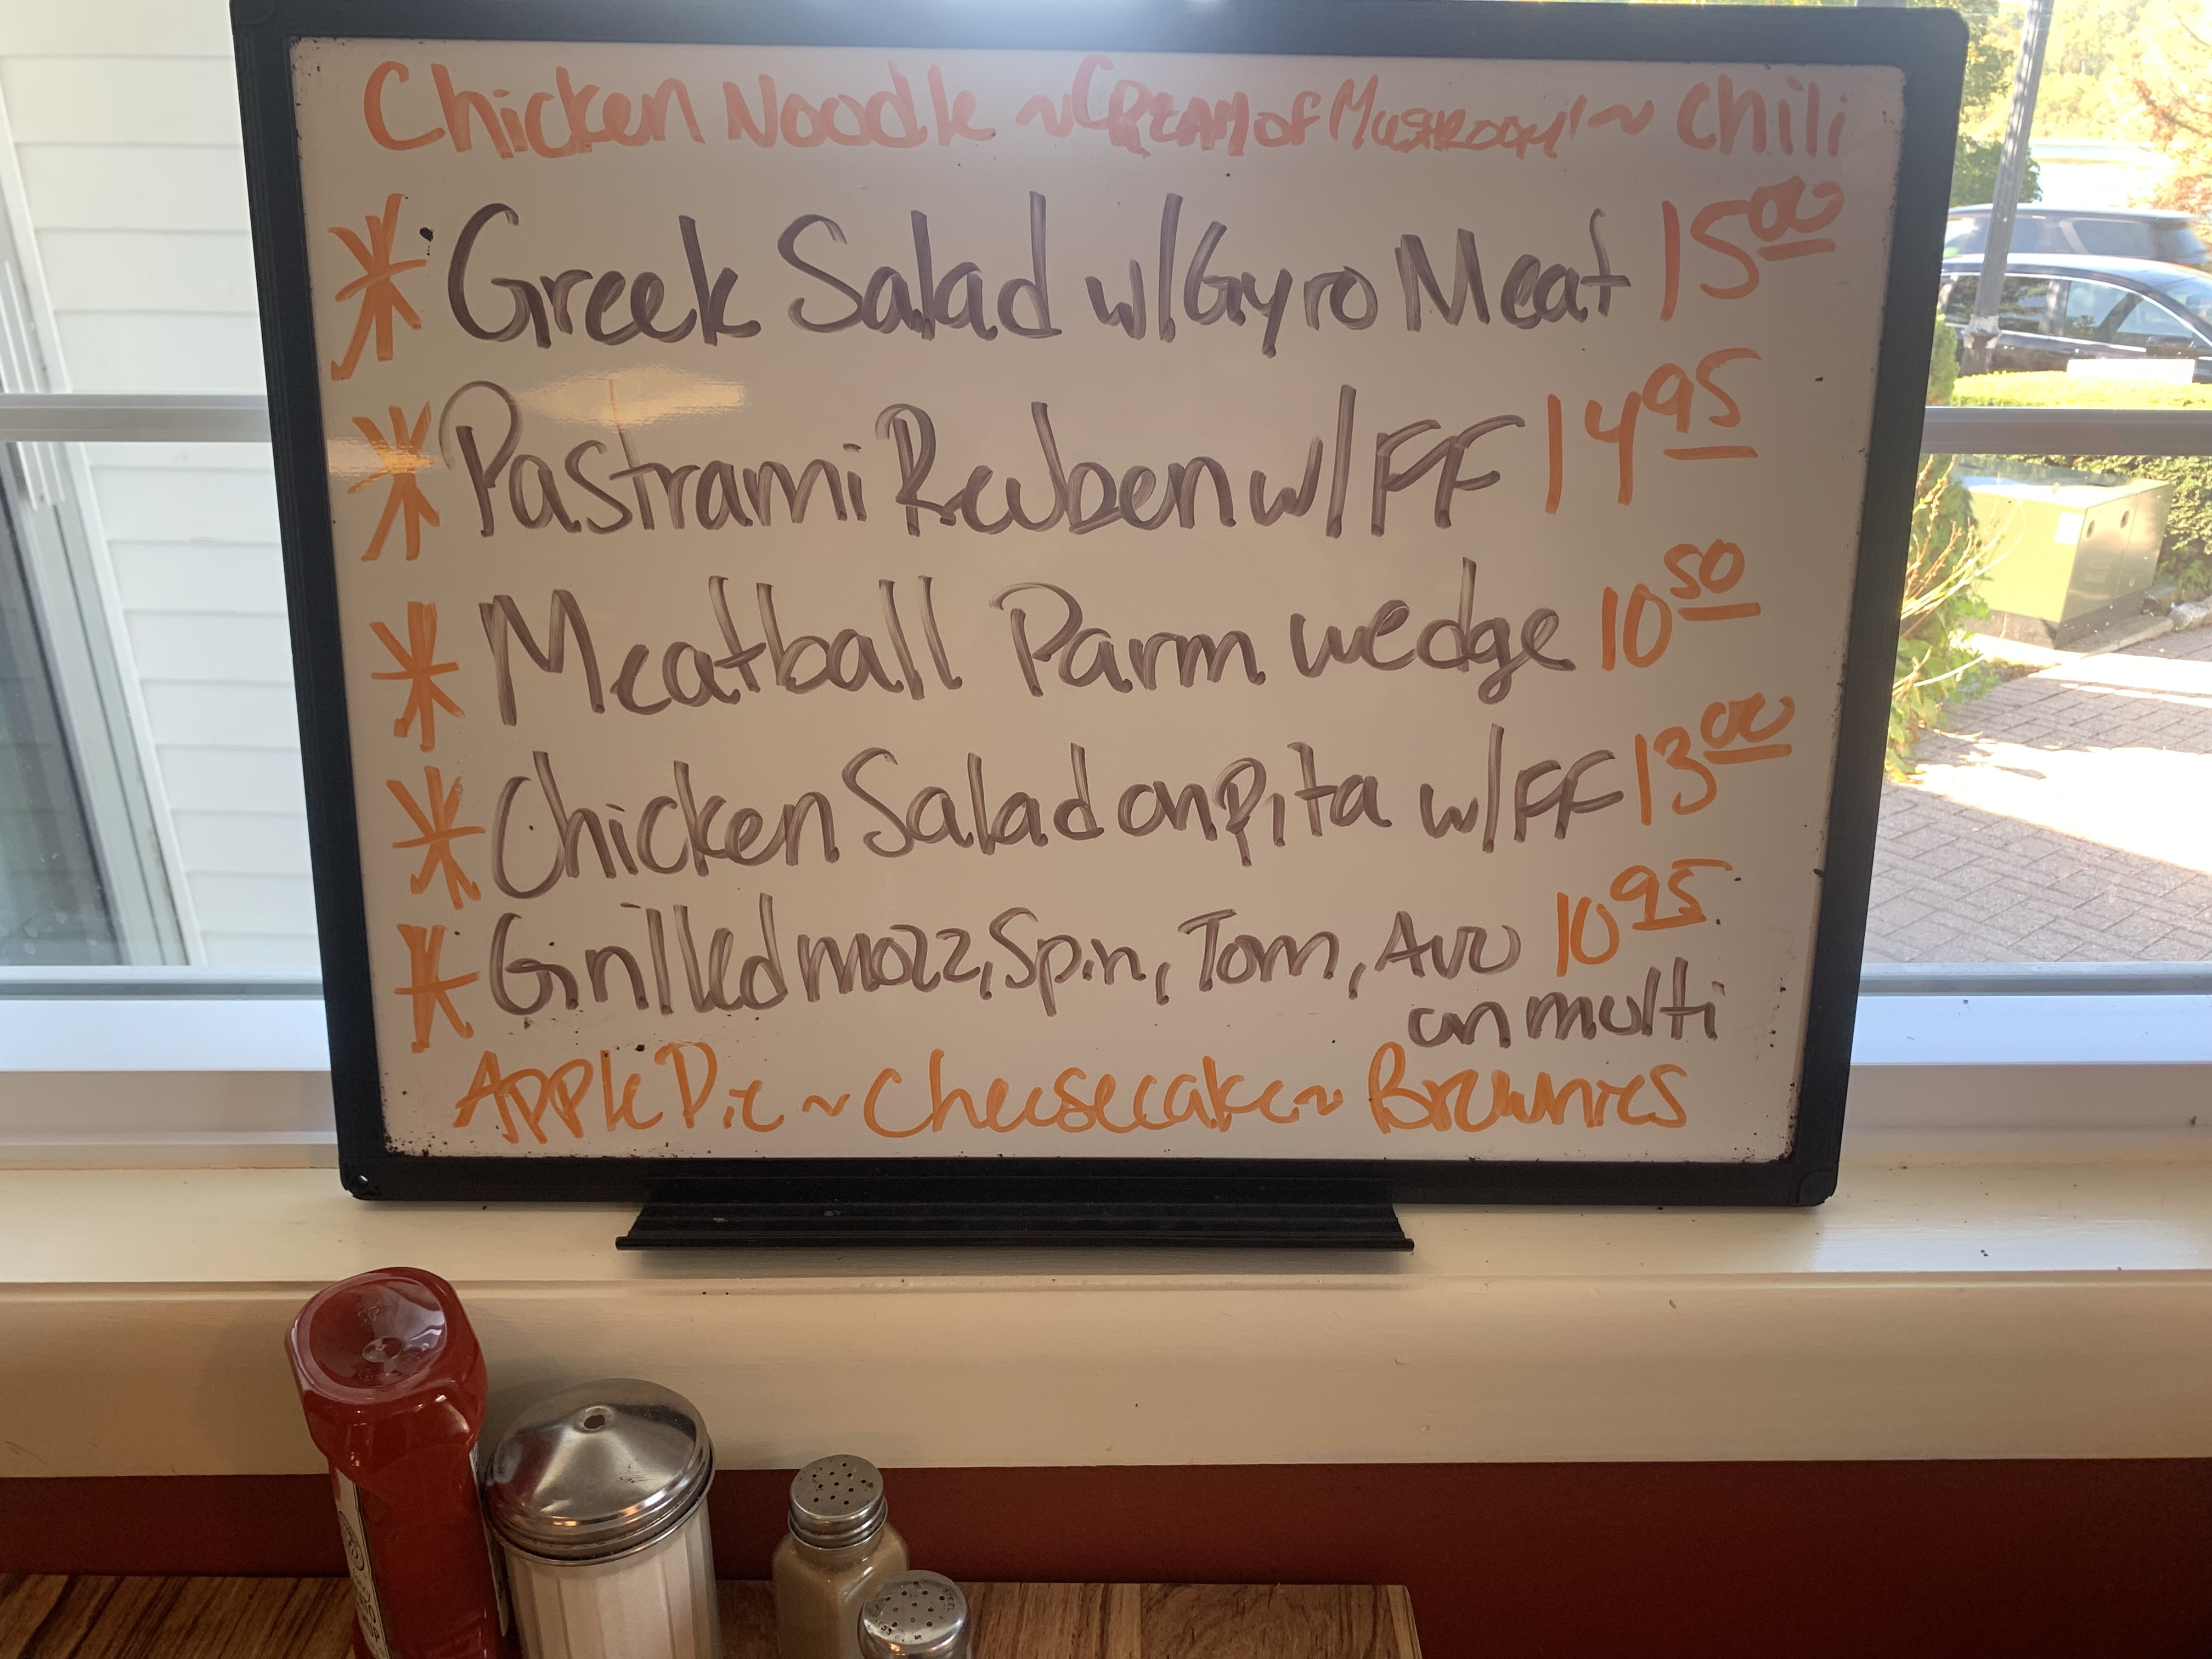 Chicken Noodle ~ CREAM of MUSHROOM ~ Chili
* Greek Salad w/Gyro Meat 15 00
* Pastrami Reuben w/FF 14 95
* Meatball Parm wedge 10 50
* Chicken Salad on Pita w/FF 13 00
* Grilled mozz, Spin, Tom, Avo 10 95
on multi
Apple Pie ~ Cheesecake ~ Brownies